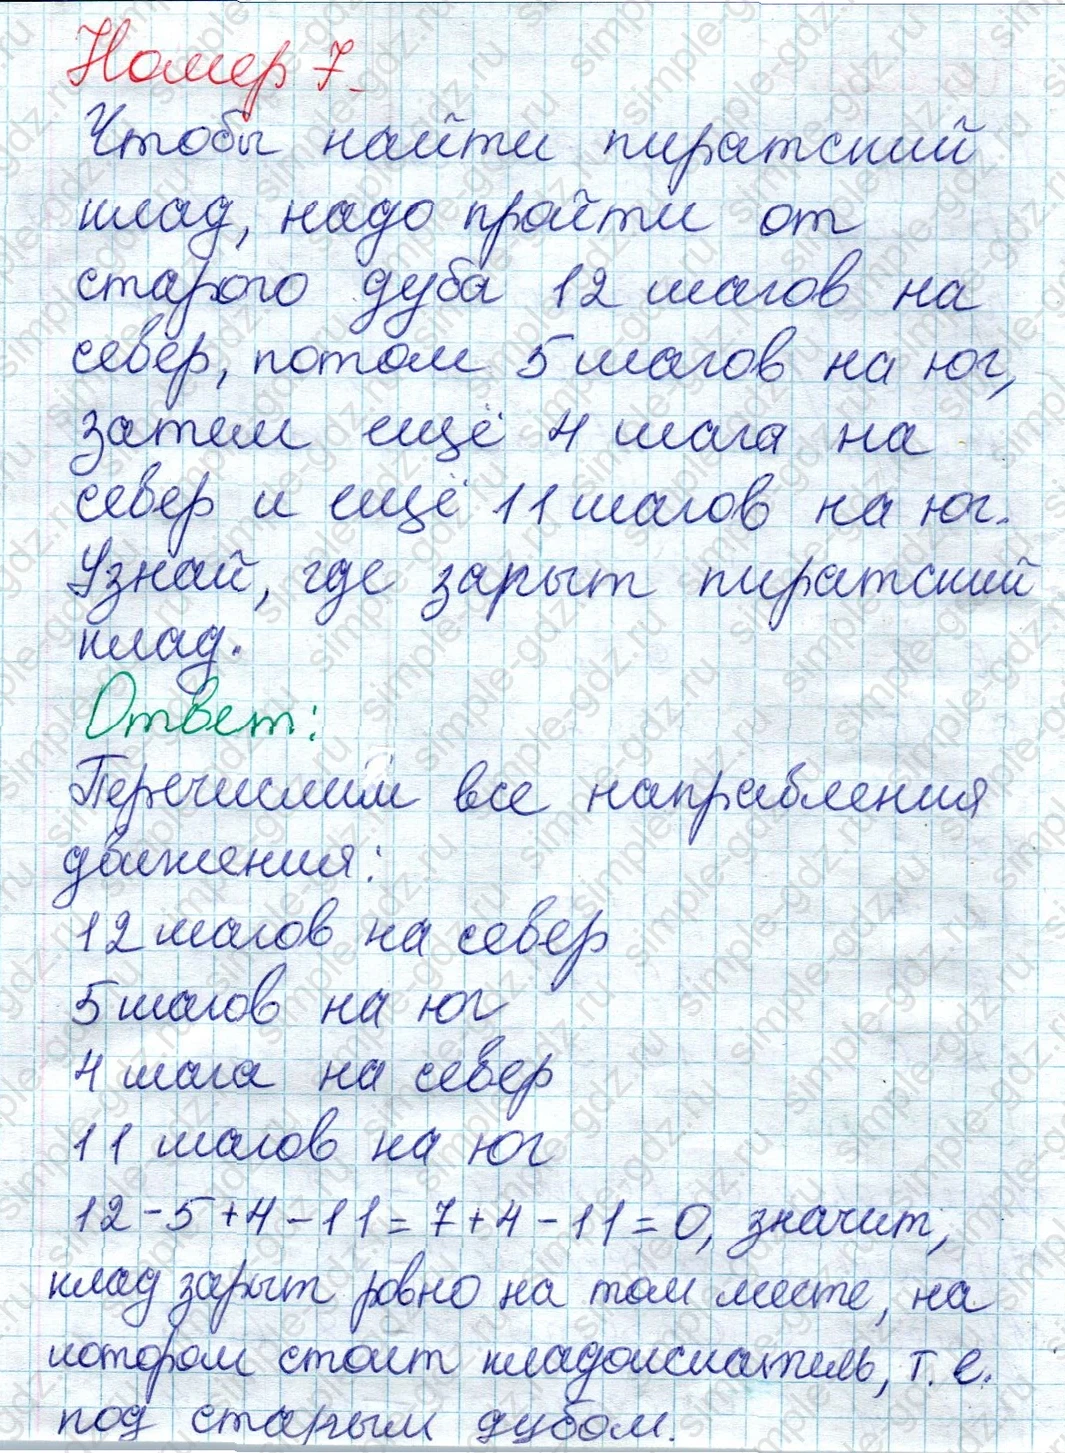 Номер 7.
Чтобы найти пиратский
клад, надо пройти от
старого дуба 12 шагов на
север, потом 5 шагов на юг,
затем ещё 4 шага на
север и ещё 11 шагов на юг.
Узнай, где зарыт пиратский
клад.
Ответ:
Перечислим все направления
движения:
12 шагов на север
5 шагов на юг
4 шага на север
11 шагов на юг
12-5+4-11=7+4-11=0, значит,
клад зарыт ровно на том месте, на
котором стоит кладоискатель, т.е.
под старым дубом.